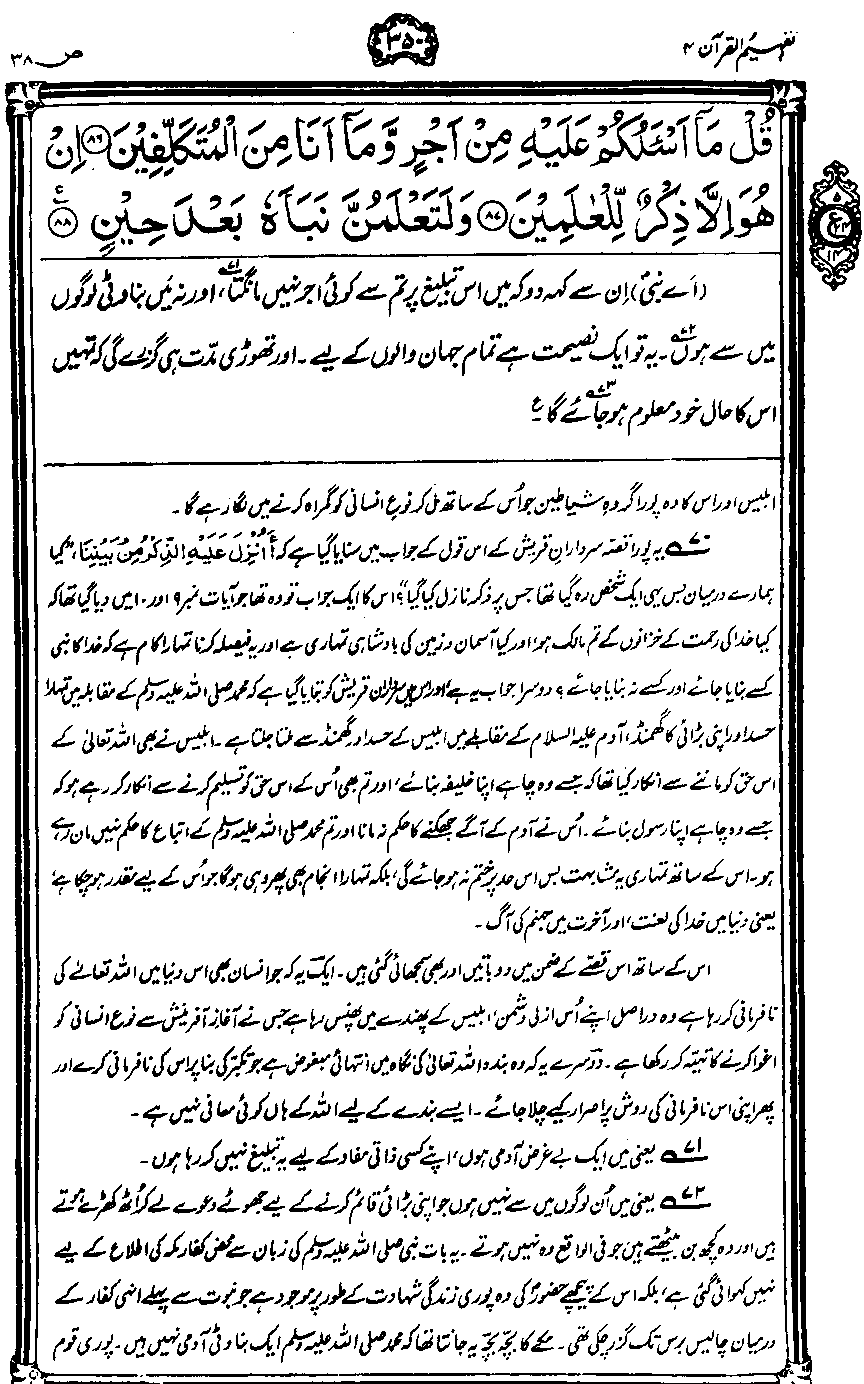 تفہیم القرآن ۴
۳۵۰
ص ۳۸
قُلْ مَاۤ اَسْـَٔلُكُمْ عَلَيْهِ مِنْ اَجْرٍ وَّمَاۤ اَنَا مِنَ الْمُتَكَلِّفِيْنَ ﴿۸۶﴾ اِنْ
هُوَ اِلَّا ذِكْرٌ لِّلْعٰلَمِيْنَ ﴿۸۷﴾ وَلَتَعْلَمُنَّ نَبَاَهٗ بَعْدَ حِيْنٍ ﴿۸۸﴾ ع
(اَے نبیؐ) اِن سے کہہ دو کہ میں اس تبلیغ پر تم سے کوئی اجر نہیں مانگتا،۷۱ اور نہ مَیں بناوٹی لوگوں
میں سے ہوں۷۲۔ یہ تو ایک نصیحت ہے تمام جہان والوں کے لیے۔ اور تھوڑی مدّت ہی گزرے گی کہ تمہیں
اس کا حال خود معلوم ہو جائے گا۷۳۔ ع
ابلیس اور اس کا وہ پورا گروہِ شیاطین جو اُس کے ساتھ مل کر نوعِ انسانی کو گمراہ کرنے میں لگا رہے گا۔
۷۰ یہ پورا قصّہ سردارانِ قریش کے اس قول کے جواب میں سنایا گیا ہے کہ ءَاُنْزِلَ عَلَيْهِ الذِّكْرُ مِنْۢ بَيْنِنَا، ”کیا
ہمارے درمیان بس یہی ایک شخص رہ گیا تھا جس پر ذکر نازل کیا گیا“؟ اس کا ایک جواب تو وہ تھا جو آیات نمبر ۹ اور ۱۰ میں دیا گیا تھا کہ
کیا خدا کی رحمت کے خزانوں کے تم مالک ہو، اور کیا آسمان و زمین کی بادشاہی تمہاری ہے اور یہ فیصلہ کرنا تمہارا کام ہے کہ خدا کا نبی
کسے بنایا جائے اور کسے نہ بنایا جائے؟ دوسرا جواب یہ ہے، اور اس میں سردارانِ قریش کو بتایا گیا ہے کہ محمد صلی اللہ علیہ وسلم کے مقابلہ میں تمہارا
حسد اور اپنی بڑائی کا گھمنڈ، آدم علیہ السلام کے مقابلے میں ابلیس کے حسد اور گھمنڈ سے ملتا جلتا ہے۔ ابلیس نے بھی اللہ تعالیٰ کے
اس حق کو ماننے سے انکار کیا تھا کہ جسے وہ چاہے اپنا خلیفہ بنائے، اور تم بھی اُس کے اس حق کو تسلیم کرنے سے انکار کر رہے ہو کہ
جسے وہ چاہے اپنا رسول بنائے۔ اُس نے آدم کے آگے جھکنے کا حکم نہ مانا اور تم محمد صلی اللہ علیہ وسلم کے اتباع کا حکم نہیں مان رہے
ہو۔ اس کے ساتھ تمہاری یہ مشابہت بس اس حد پر ختم نہ ہو جائے گی، بلکہ تمہارا انجام بھی پھر وہی ہوگا جو اُس کے لیے مقدر ہو چکا ہے،
یعنی دنیا میں خدا کی لعنت، اور آخرت میں جہنم کی آگ۔
اس کے ساتھ اس قصّے کے ضمن میں دو باتیں اور بھی سمجھائی گئی ہیں۔ ایک یہ کہ جو انسان بھی اس دنیا میں اللہ تعالیٰ کی
نافرمانی کر رہا ہے وہ دراصل اپنے اُس ازلی دشمن، ابلیس کے پھندے میں پھنس رہا ہے جس نے آغازِ آفرینش سے نوعِ انسانی کو
اغوا کرنے کا تہیّہ کر رکھا ہے۔ دوسرے یہ کہ وہ بندہ اللہ تعالیٰ کی نگاہ میں انتہائی مبغوض ہے جو تکبّر کی بنا پر اس کی نافرمانی کرے اور
پھر اپنی اس نافرمانی کی روش پر اصرار کیے چلا جائے۔ ایسے بندے کے لیے اللہ کے ہاں کوئی معافی نہیں ہے۔
۷۱ یعنی میں ایک بے غرض آدمی ہوں، اپنے کسی ذاتی مفاد کے لیے یہ تبلیغ نہیں کر رہا ہوں۔
۷۲ یعنی میں اُن لوگوں میں سے نہیں ہوں جو اپنی بڑائی قائم کرنے کے لیے جھوٹے دعوے لے کر اُٹھ کھڑے ہوتے
ہیں اور وہ کچھ بن بیٹھتے ہیں جو فی الواقع وہ نہیں ہوتے۔ یہ بات نبی صلی اللہ علیہ وسلم کی زبان سے محض کفارِ مکہ کی اطلاع کے لیے
نہیں کہوائی گئی ہے، بلکہ اس کے پیچھے حضورؐ کی وہ پوری زندگی شہادت کے طور پر موجود ہے جو نبوت سے پہلے انہی کفار کے
درمیان چالیس برس تک گزر چکی تھی۔ مکّے کا بچّہ بچّہ یہ جانتا تھا کہ محمد صلی اللہ علیہ وسلم ایک بناوٹی آدمی نہیں ہیں۔ پوری قوم